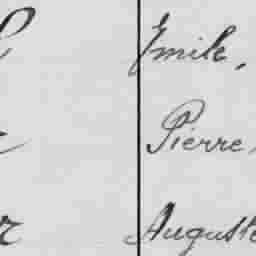 Emile,
Pierre,
Auguste